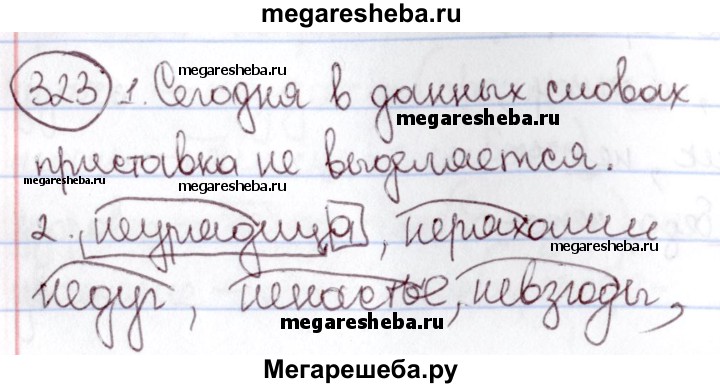 megaresheba.ru
megaresheba.ru
323 1. Сегодня в данных словах
megaresheba.ru
приставка не выделяется.
megaresheba.ru
megaresheba.ru
2. неурядица, неряхами
megaresheba.ru
недуг, ненастье, невзгоды,
megaresheba.ru
Мегарешеба.ру